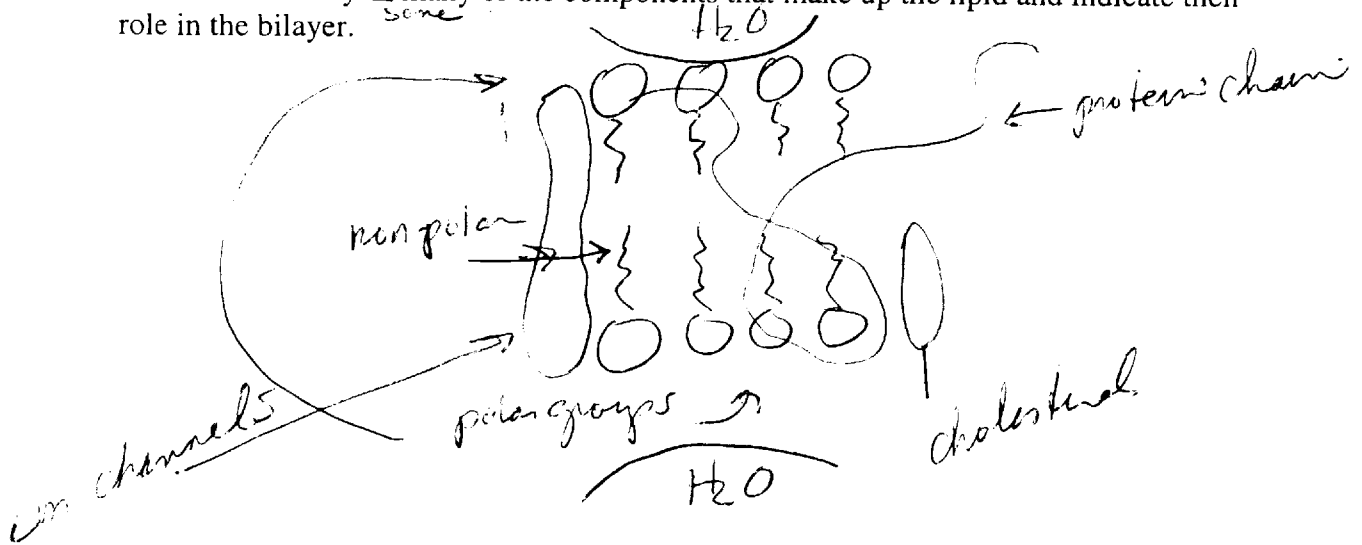 many of the components that make up the lipid and indicate their
some
role in the bilayer.
H2O
protein chain
non polar
polar groups
cholesterol
ion channels
H2O